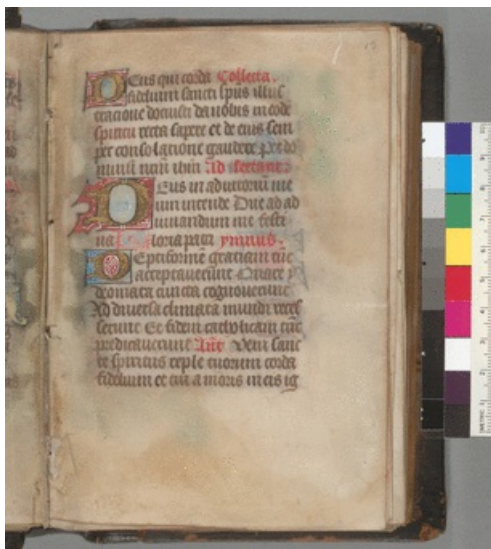 13
Deus qui corda Collecta.
fidelium sancti spūs illus
tracione docuisti da nobis in eodē
spiritu recta sapere et de eius sem
per consolatione gaudere Per do
minum nrm ihm Ad sextam
Deus in adiutoriū me
um intende Dne ad ad
iuuandum me festi
na Gloria patri ymnus.
Septiformē gratiam tūc
acceptauerunt Quare y
deomata cuncta cognouerunt
Ad diuersa climata mundi reces
serunt Et fidem catholicam tūc
predicauerunt Ant Veni sanc
te spiritus reple tuorum corda
fidelium et tui amoris in eis ig